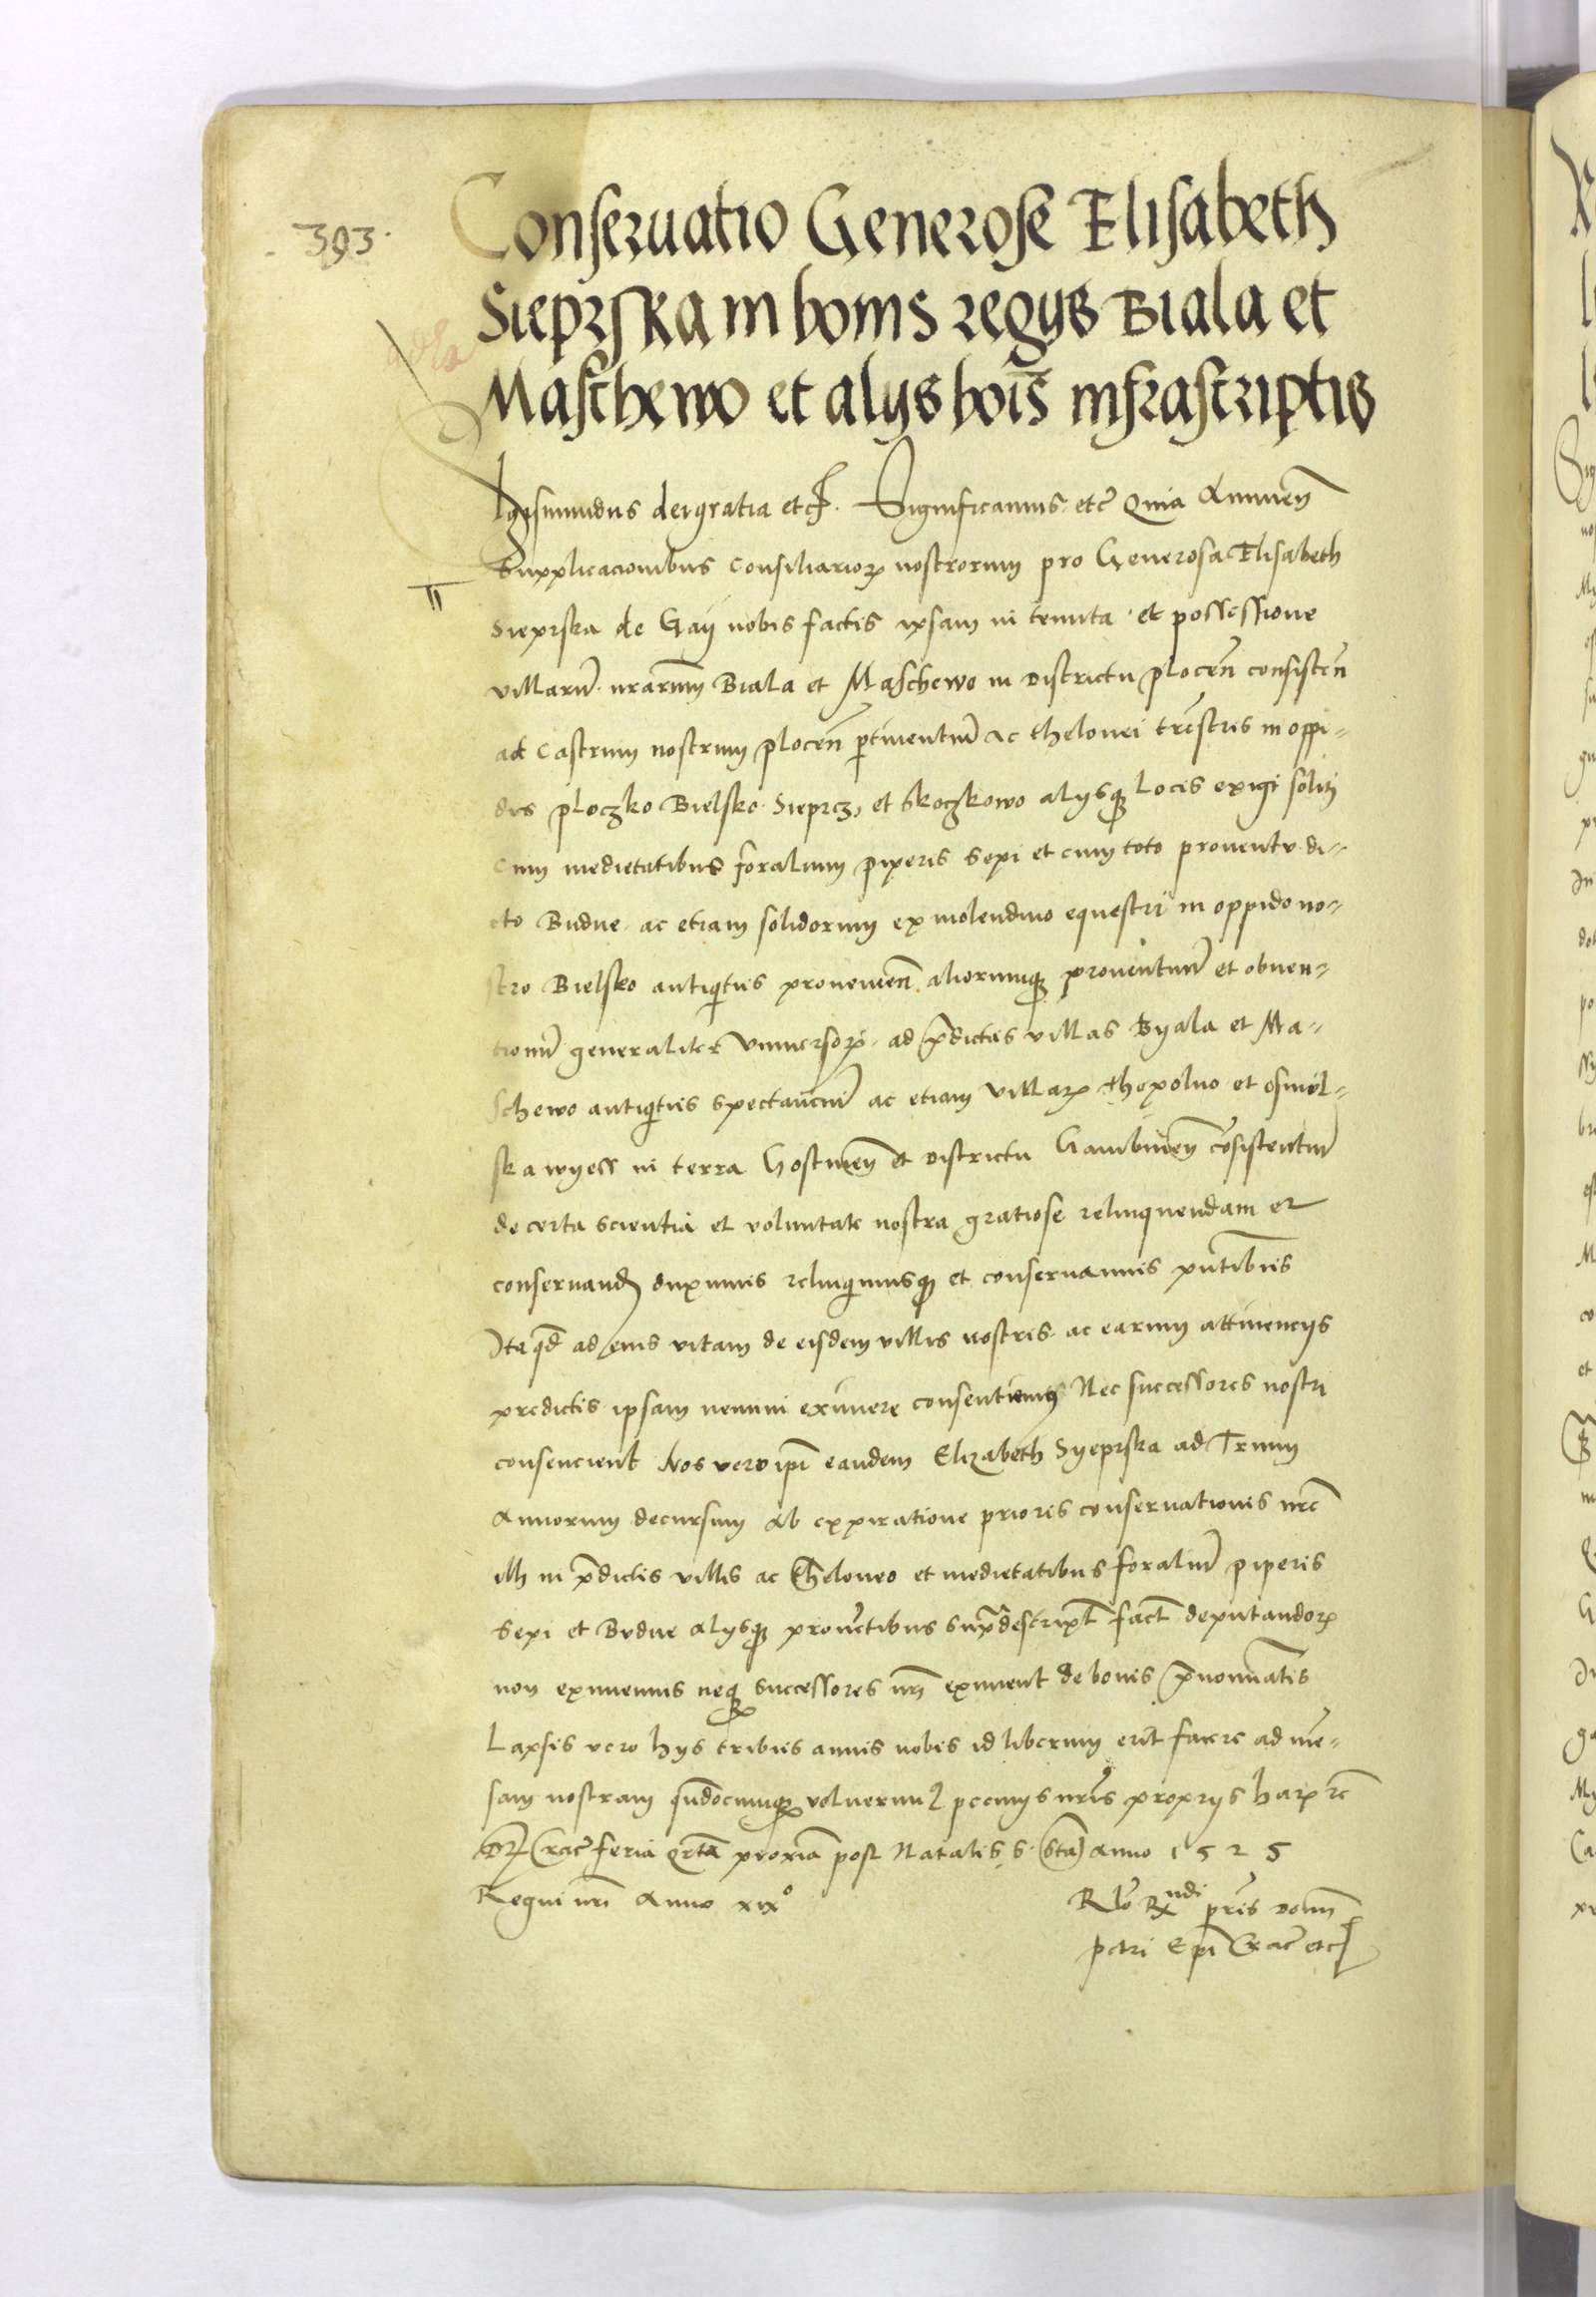 393.
Conservatio Generose Elisabeth
Sieprska in bonis regijs Biala et
Maschewo et alijs bois infrascriptis
Sigismundus dei gratia etc. Significamus etc Quia Annuen
Supplicacionibus Consiliarior nostrorum pro Generosa Elisabeth
Sieprska de Gaij nobis factis ipsam in tenuta et possessione
villarum nrarum Biala et Maschewo in Districtu plocen consisten
ad Castrum nostrum plocen ptinentium ac thelonei trestris in oppi-
dis ploczko Bielsko Sieprcz et Skoczkowo alijsque Locis exigi soliti
Cum medietatibus foralium piperis Sepi et cum toto proventu di-
cto Budne ac etiam solidorum ex molendino equestri in oppido no-
stro Bielsko antiqtus provenien aliorumque proventuum et obven-
tionum generaliter Universor ad pdictas villas Byala et Ma-
schewo antiqtus spectancium ac etiam Villar thopolno et osmol-
ska wyess in terra Gostinen et Districtu Gambinen consistentium
de certa scientia et voluntate nostra gratiose relinquendam et
conservand duximus relinqimusque et conservamus pntibus
Ita qd ad eius vitam de eisdem villis nostris ac earum attinencijs
predictis ipsam nemini eximere consentiemus Nec successores nostri
consencient Nos vero ipi eandem Elizabeth Syeprska ad Trium
Annorum decursum ab expiratione prioris conservationis nre
illi in pdictis villis ac Theloneo et medietatibus foralium piperis
Sepi et Budne alijsque proventibus supradescript fact deputandor
non eximemus neque successores nri eximent de bonis prenominatis
Lapsis vero hijs tribus annis nobis id liberum erit facere ad men-
sam nostram quandocumque voluerimus pecunijs nris proprijs har re
Dat Crac feria qrta proxima post Natalis S. Anno 1525
Regni nri Anno xix°
Rlo Rndi pris domi
petri Epi Crac etc